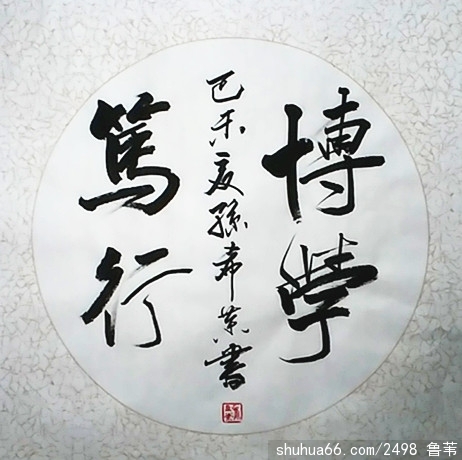 博學
篤行
己未夏孫希榮書
shuhua66.com/2498 鲁苇